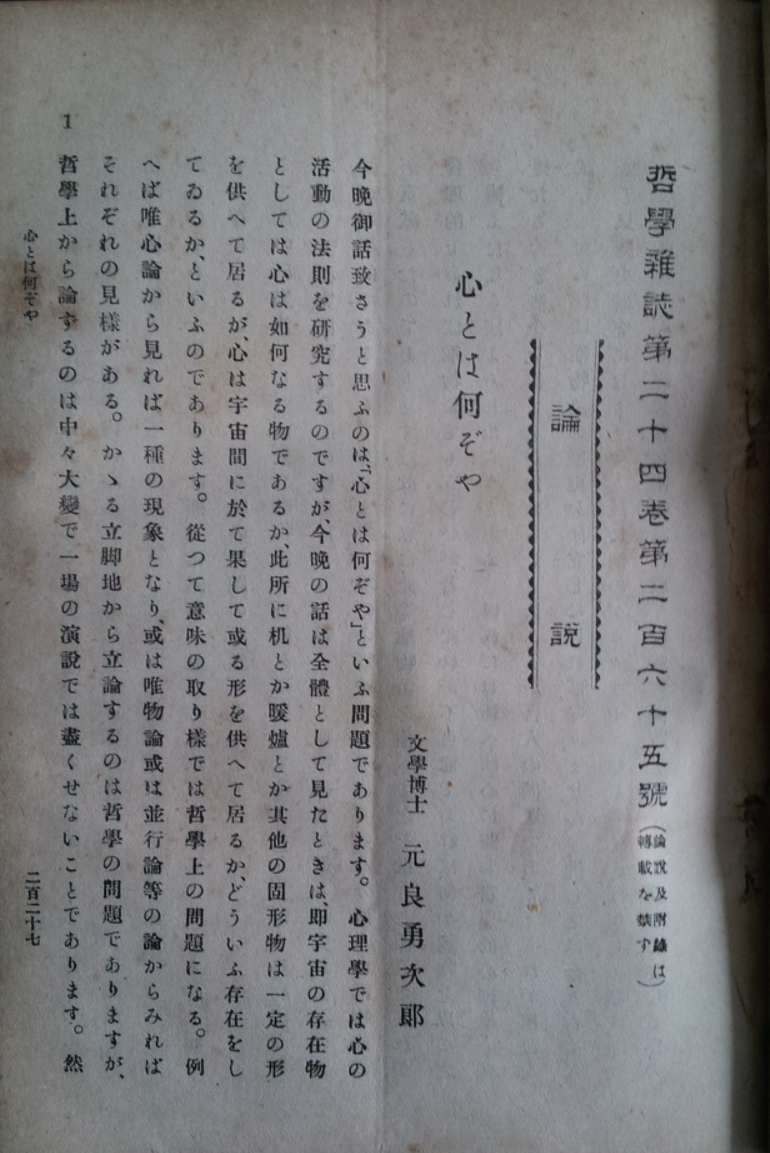 哲學雜誌第二十四卷第二百六十五號（論說及附錄は轉載を禁ず）
論說
心とは何ぞや
文學博士 元良勇次郞
今晚御話致さうと思ふのは、「心とは何ぞや」といふ問題であります。心理學では心の
活動の法則を硏究するのですが、今晚の話は全體として見たときは、卽宇宙の存在物
としては心は如何なる物であるか、此所に机とか暖爐とか其他の固形物は一定の形
を供へて居るが、心は宇宙間に於て果して或る形を供へて居るか、どういふ存在をし
てゐるか、といふのであります。從つて意味の取り樣では哲學上の問題になる。例
へば唯心論から見れば一種の現象となり、或は唯物論或は並行論等の論からみれば
それぞれの見樣がある。かゝる立脚地から立論するのは哲學の問題でありますが、
哲學上から論ずるのは中々大變で一場の演說では盡くせないことであります。然
1
心とは何ぞや
二百二十七